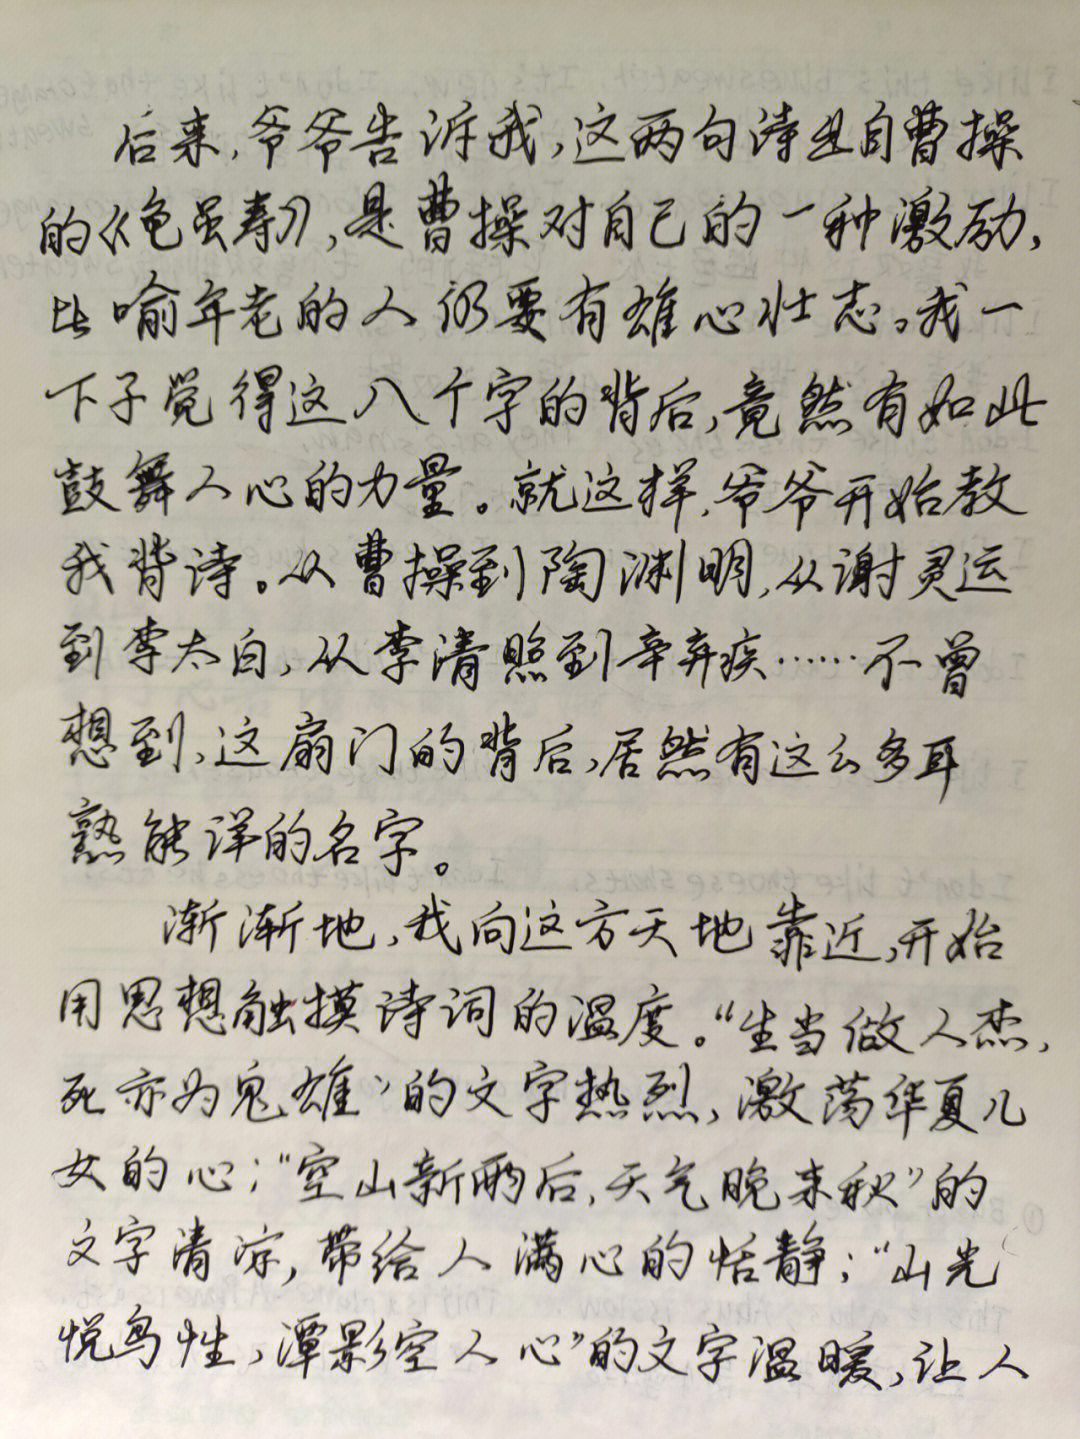 后来,爷爷告诉我,这两句诗出自曹操
的《龟虽寿》,是曹操对自己的一种激励,
比喻年老的人仍要有雄心壮志。我一
下子觉得这八个字的背后,竟然有如此
鼓舞人心的力量。就这样,爷爷开始教
我背诗。从曹操到陶渊明,从谢灵运
到李太白,从李清照到辛弃疾……不曾
想到,这扇门的背后,居然有这么多耳
熟能详的名字。
渐渐地,我向这方天地靠近,开始
用思想触摸诗词的温度。“生当做人杰,
死亦为鬼雄”的文字热烈,激荡华夏儿
女的心;“空山新雨后,天气晚来秋”的
文字清凉,带给人满心的恬静;“山光
悦鸟性,潭影空人心”的文字温暖,让人